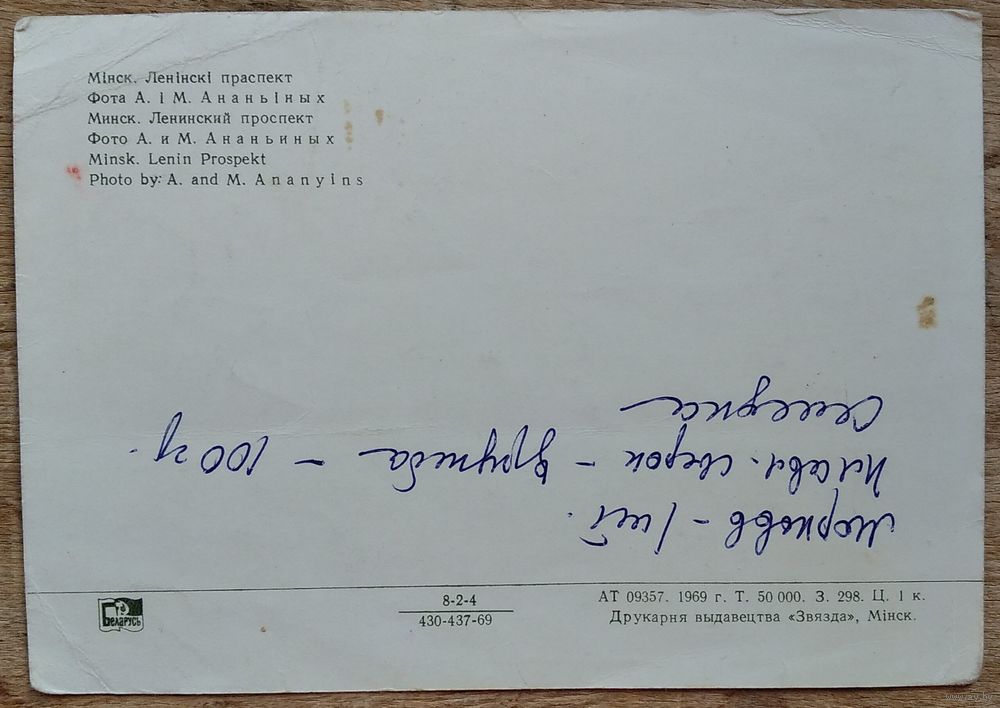 Мінск. Ленінскі праспект
Фота А. і М. Ананьіных
Минск. Ленинский проспект
Фото А. и М. Ананьиных
Minsk. Lenin Prospekt
Photo by: A. and M. Ananyins
Морковь – 1 шт.
Плавл. сырок – Дружба – 100 гр.
Беларусь
8-2-4
430-437-69
АТ 09357. 1969 г. Т. 50 000. З. 298. Ц. 1 к.
Друкарня выдавецтва «Звязда», Мінск.